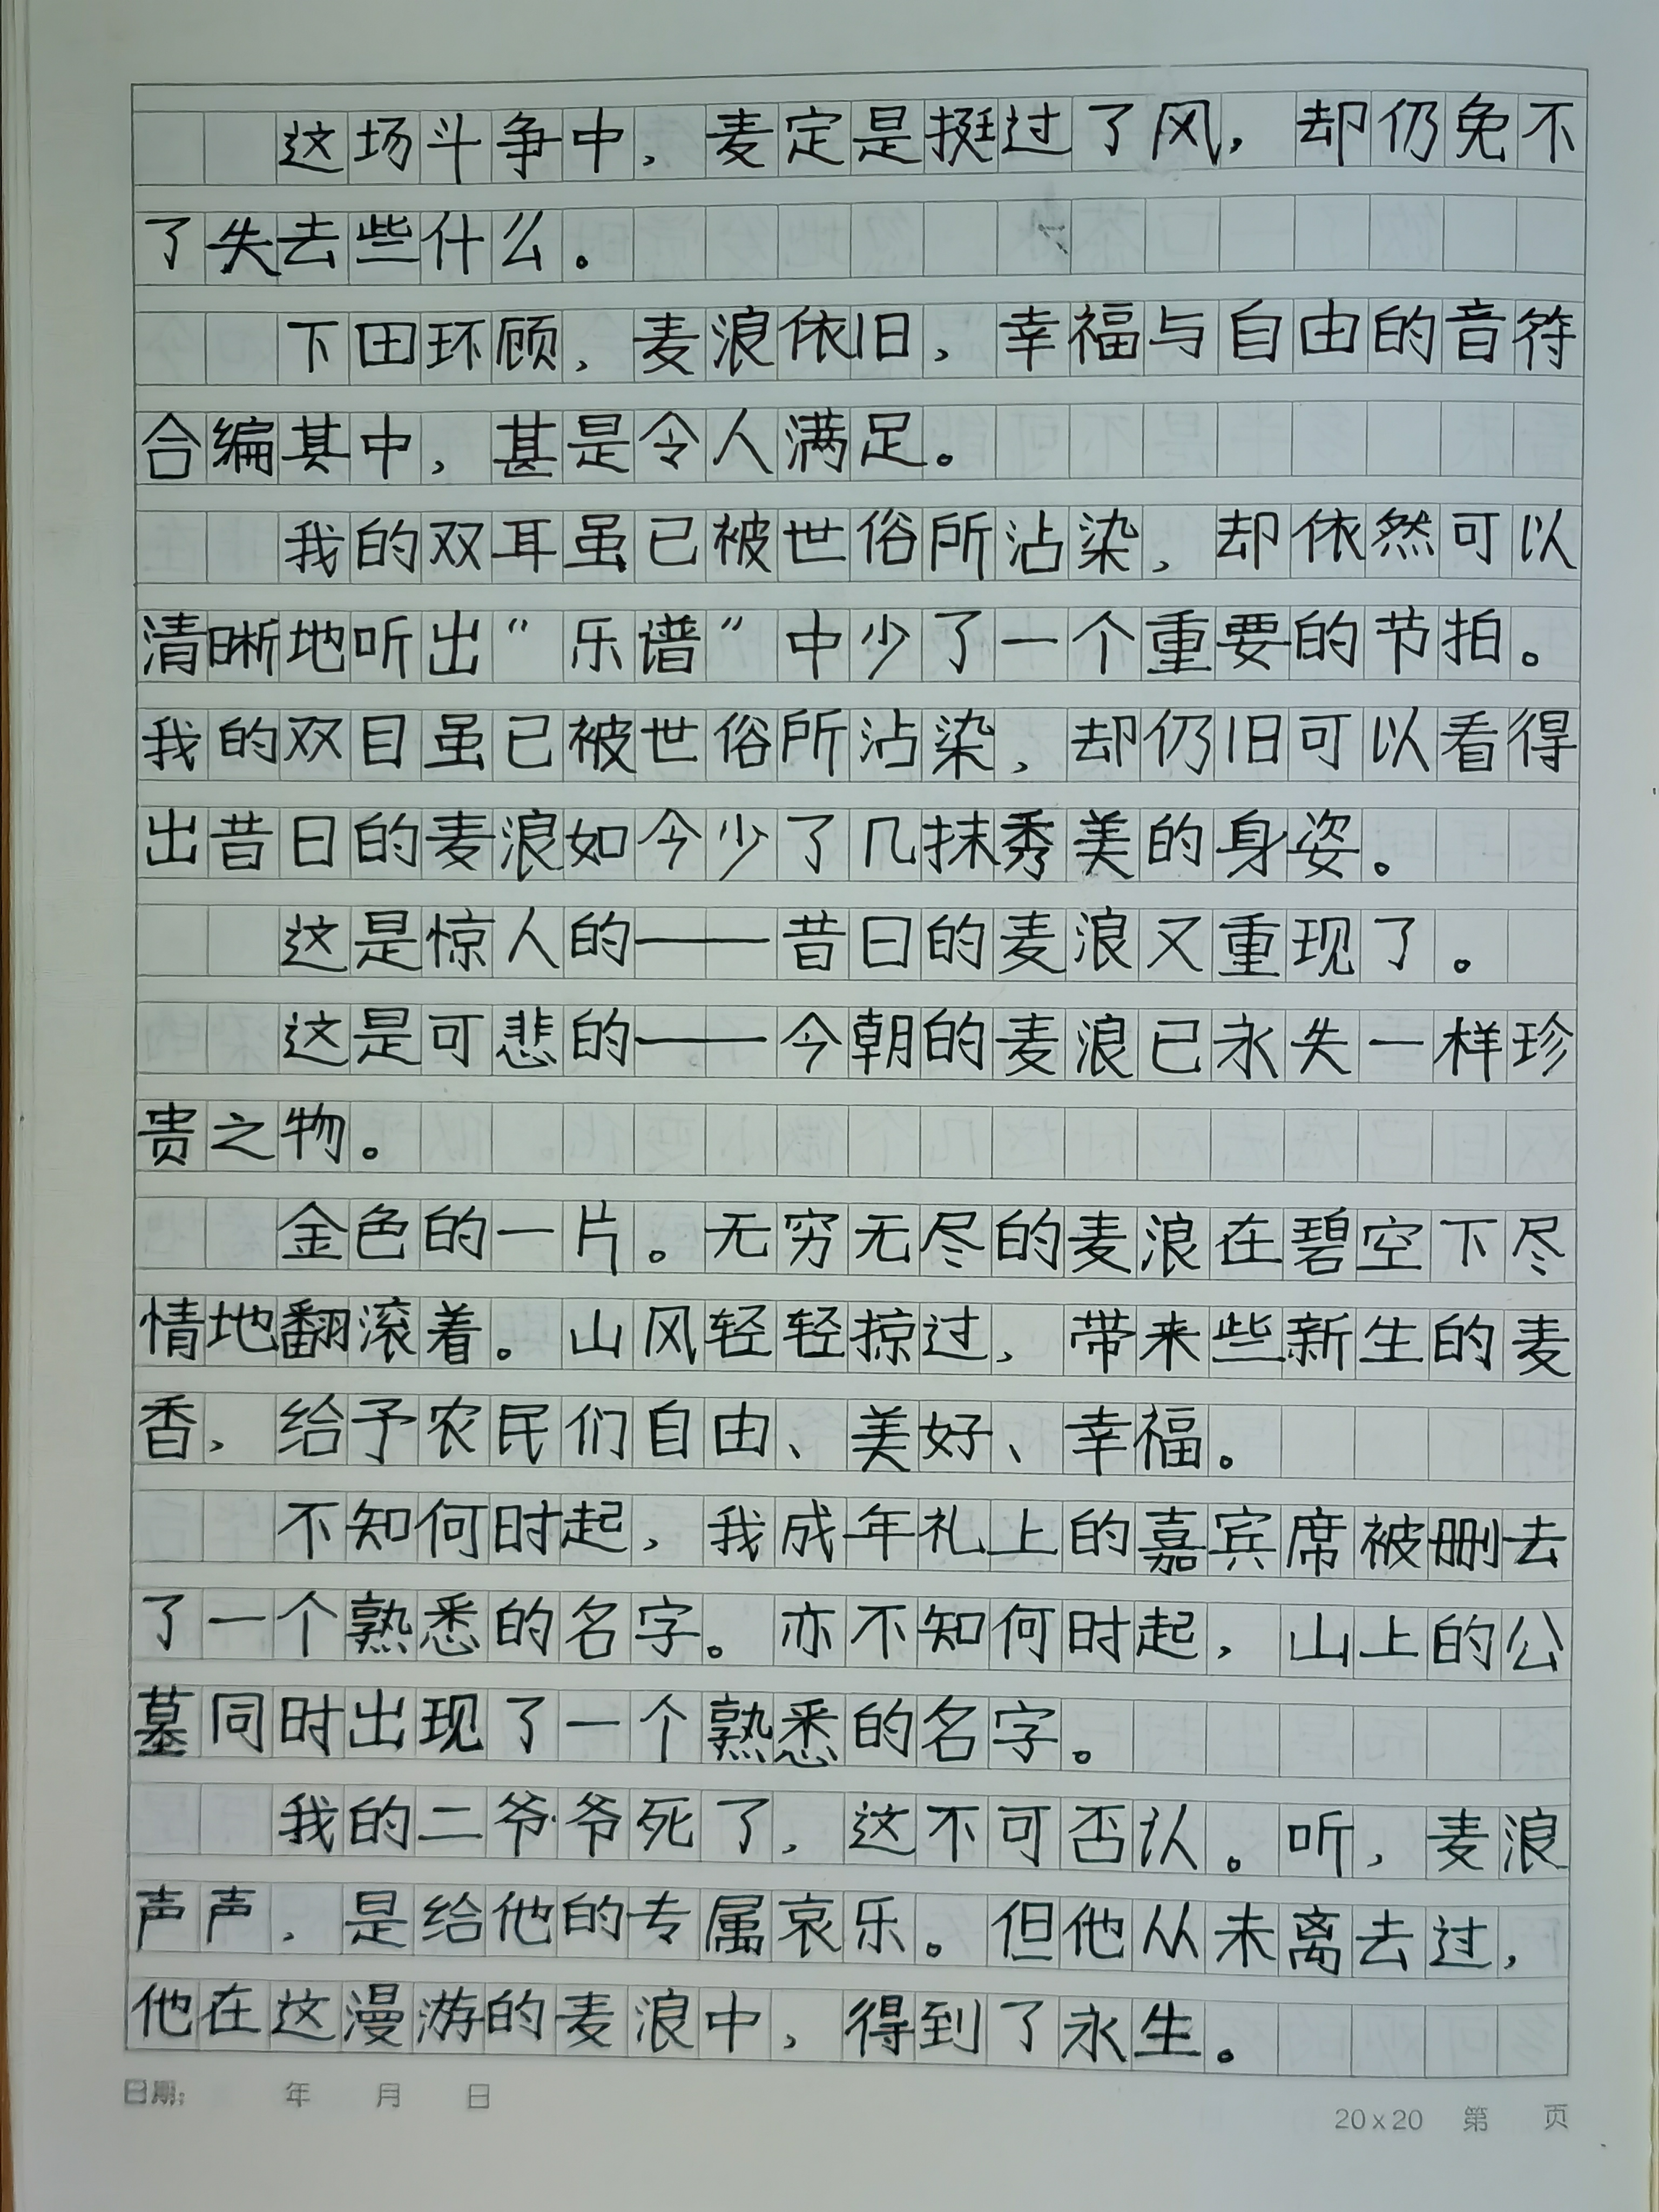 这场斗争中，麦定是挺过了风，却仍免不
了失去些什么。
下田环顾，麦浪依旧，幸福与自由的音符
合编其中，甚是令人满足。
我的双耳虽已被世俗所沾染，却依然可以
清晰地听出"乐谱"中少了一个重要的节拍。
我的双目虽已被世俗所沾染，却仍旧可以看得
出昔日的麦浪如今少了几抹秀美的身姿。
这是惊人的——昔日的麦浪又重现了。
这是可悲的——今朝的麦浪已永失一样珍
贵之物。
金色的一片。无穷无尽的麦浪在碧空下尽
情地翻滚着。山风轻轻掠过，带来些新生的麦
香，给予农民们自由、美好、幸福。
不知何时起，我成年礼上的嘉宾席被删去
了一个熟悉的名字。亦不知何时起，山上的公
墓同时出现了一个熟悉的名字。
我的二爷爷死了，这不可否认。听，麦浪
声声，是给他的专属哀乐。但他从未离去过，
他在这漫游的麦浪中，得到了永生。
日期： 年 月 日
20×20 第 页